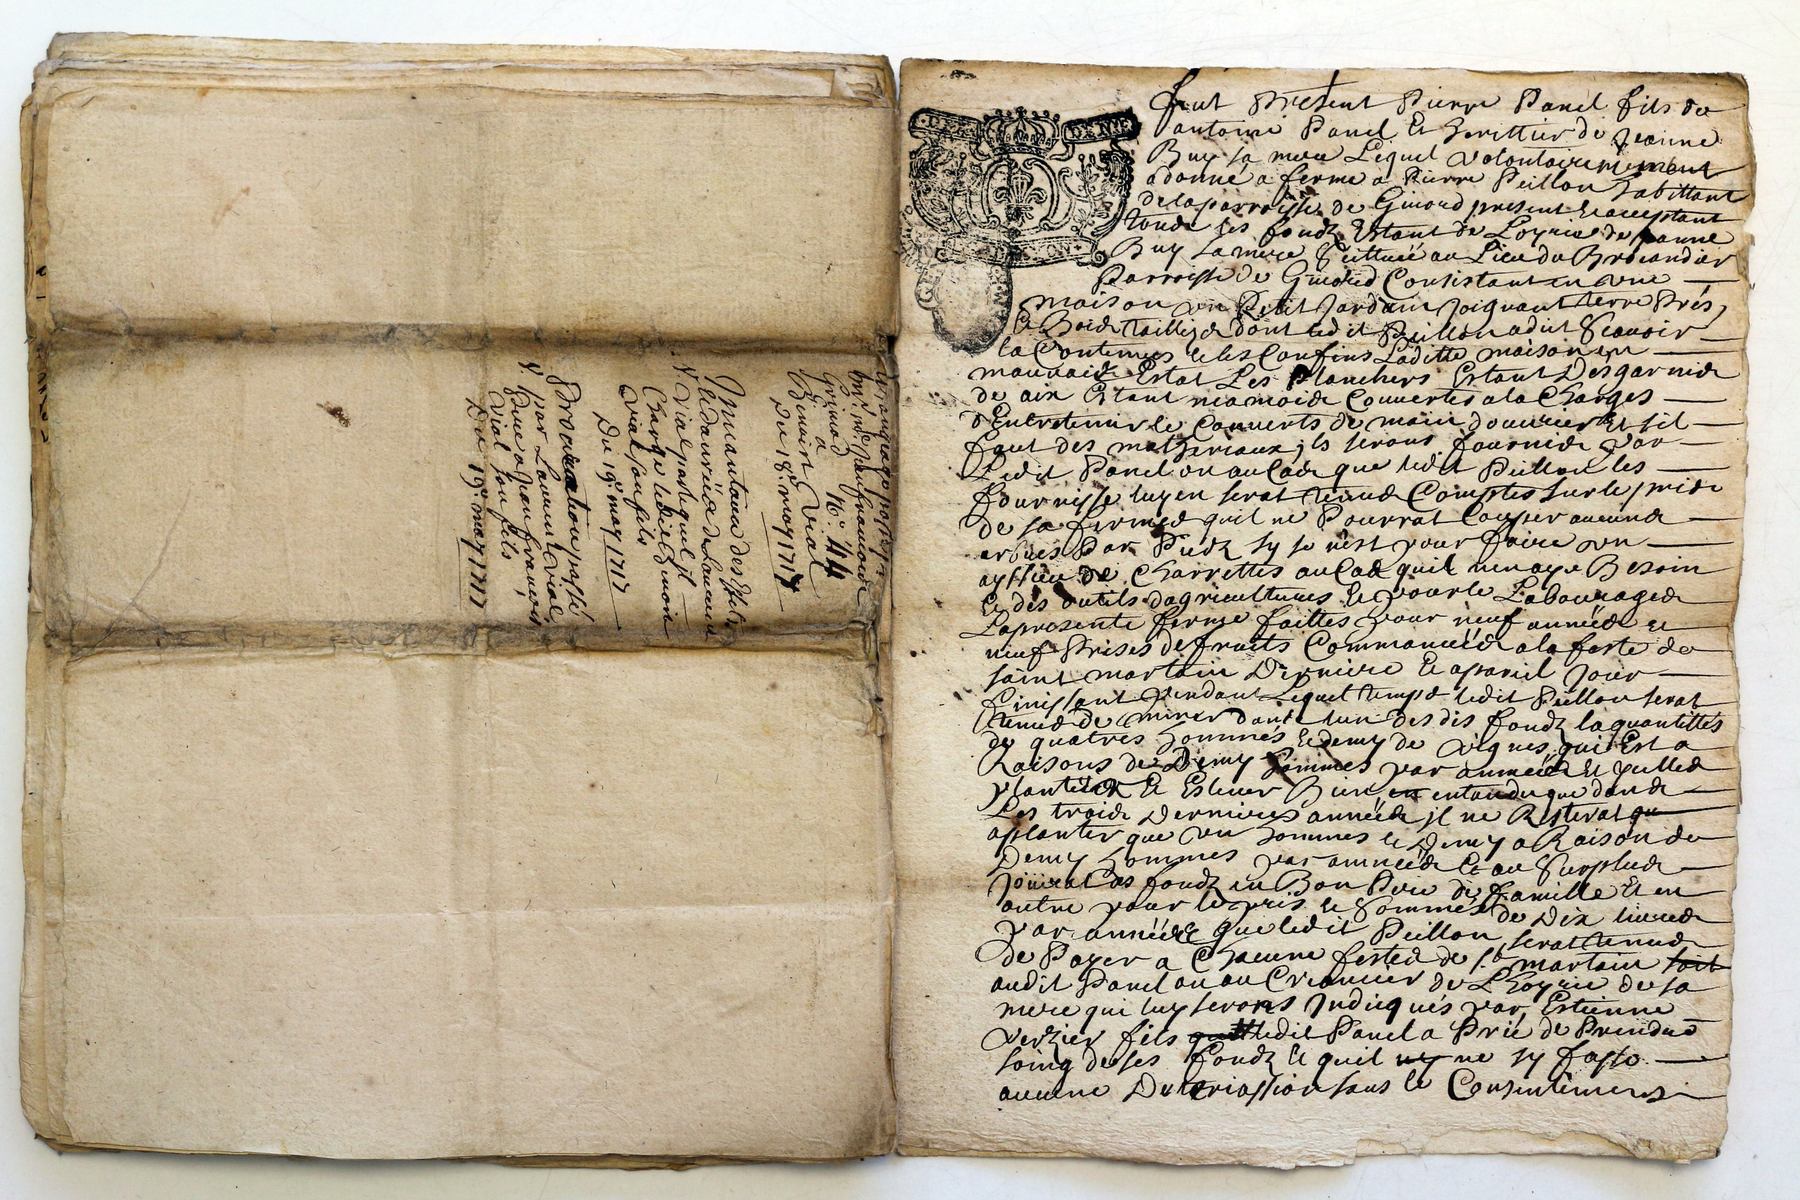 arrantage passé par
Benoist Vial
Grimod N° 44
a
Benoist Vial
Du 18e may 1717
Inuantaire des Effets
Vial par lequel il
Charge ledit Benoist
Vial son fils
Du 19e may 1717
Procuration passé
par Laurent Vial
Vial son fils
Du 19e may 1717
DE
DE
fut present Pierre Panel fils de
antoine Panel Et herittier de Jeanne
Buy sa mere Lequel volontairemement
a donné a ferme a Pierre Peillon habittant
de la parroisse de Gimond present Et acceptant
tous les fondz Estant de Loyrie de Jeanne
Buy sa mere Scittuéé au Lieu du Brocandier
Parroisse de Gimond Consistant en vne
maison vn Petit Jardain Joignant terre Prés
Et Bois taillis dont ledit Peillon a dit Scauoir
la Contenues Et les Confins Laditte maison en
mauuais Estat Les Planchers Estant Desgarnis
de aix Estant neamois Couuertes a la Charges
d'Entretenir le Couuerts de main d'ouurier Et sil
faut des matheriaux ils serons fournis par
Ledit Panel ou au Cas que ledit Peillon les
fournisse luy en serat tenu Comptes sur le pris
de sa ferme quil ne Pourrat Couper aucuns
arbres Par Piedz sy se nest pour faire vn
ayssieu de Charrettes au Cas quil nen aye Besoin
Et des outils d'agricultures Et pour le Labourages
La presente ferme faittes pour neuf annéés Et
neuf Prises de fruits Commancéés a la feste de
saint martain Derniere Et a pareil Jour
finissant Pendant Lequel temps ledit Peillon serat
tenus de miner dans lun des dis fondz la quantittés
de quatres hommés Et demy de vignes qui Est a
Raisons de Demy hommes par annéés Et Icelles
plantées Et Esleuer Bien en entandu que dans
Les trois Dernieres annéés il ne Resterat qu
a planter que vn hommes Et Demy a Raison de
Demy hommes par annéés Et au Surplus
Jouirat Les fondz en Bon Pere de famille Et en
outre pour le pris Et Sommes de Dix liures
par annéés que ledit Peillon serat tenus
de Payer a Chacune festes de St martain soit
audit Panel ou au Creancier de L'hoyrie de sa
mere qui luy serons Indiqués par Estienne
Verzier fils ledit Panel a Prié de Prendre
soing de ses fondz Et quil ny ne sy fasse
aucune Deteriassion sans le Consentement